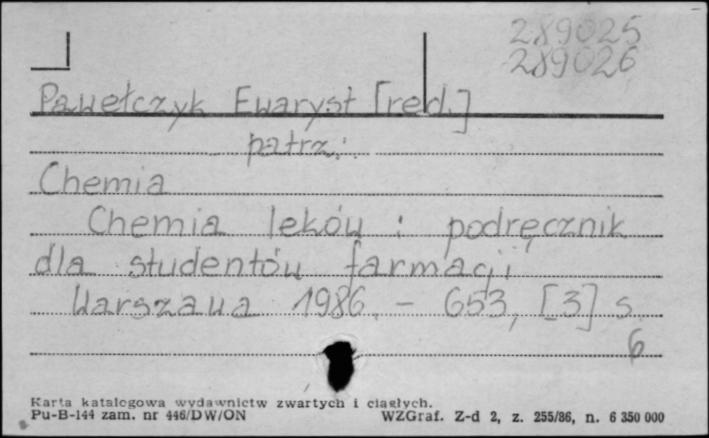 289025
289026
Pawełczyk Ewaryst [red.]
patrz:
Chemia
Chemia leków : podręcznik
dla studentów farmacji
Warszawa 1986. – 653, [3] s.
6
Karta katalogowa wydawnictw zwartych i ciągłych.
Pu-B-144 zam. nr 446/DW/ON WZGraf. Z-d 2, z. 255/86, n. 6 350 000